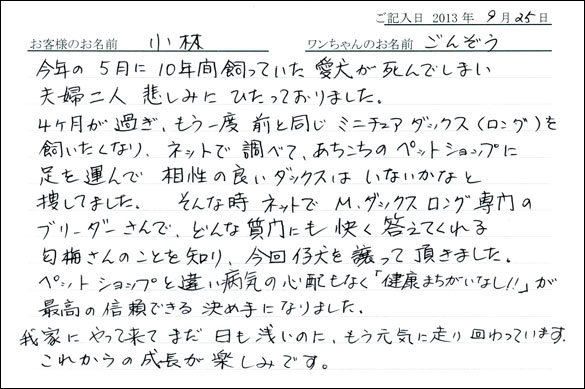 ご記入日 2013 年 9 月 25 日
お客様のお名前 小林 ワンちゃんのお名前 ごんぞう
今年の 5月に 10年間飼っていた 愛犬が 死んでしまい
夫婦二人 悲しみに ひたっておりました。
4ヶ月が 過ぎ、もう一度 前と同じ ミニチュア ダックス(ロング)を
飼いたくなり、ネットで 調べて、あちこちの ペットショップに
足を 運んで 相性の良いダックスは いないかなと
捜してました。 そんな時 ネットで M.ダックス ロング 専門の
ブリーダーさんで、どんな 質問にも 快く 答えてくれる
匂梅さんのことを 知り、今回 仔犬を 譲って 頂きました。
ペットショップと 違い 病気の 心配もなく「健康まちがいなし!!」が
最高の 信頼できる 決め手に なりました。
我家に やって来て まだ 日も 浅いのに、もう元気に走り 回わっています.
これからの成長が 楽しみです。